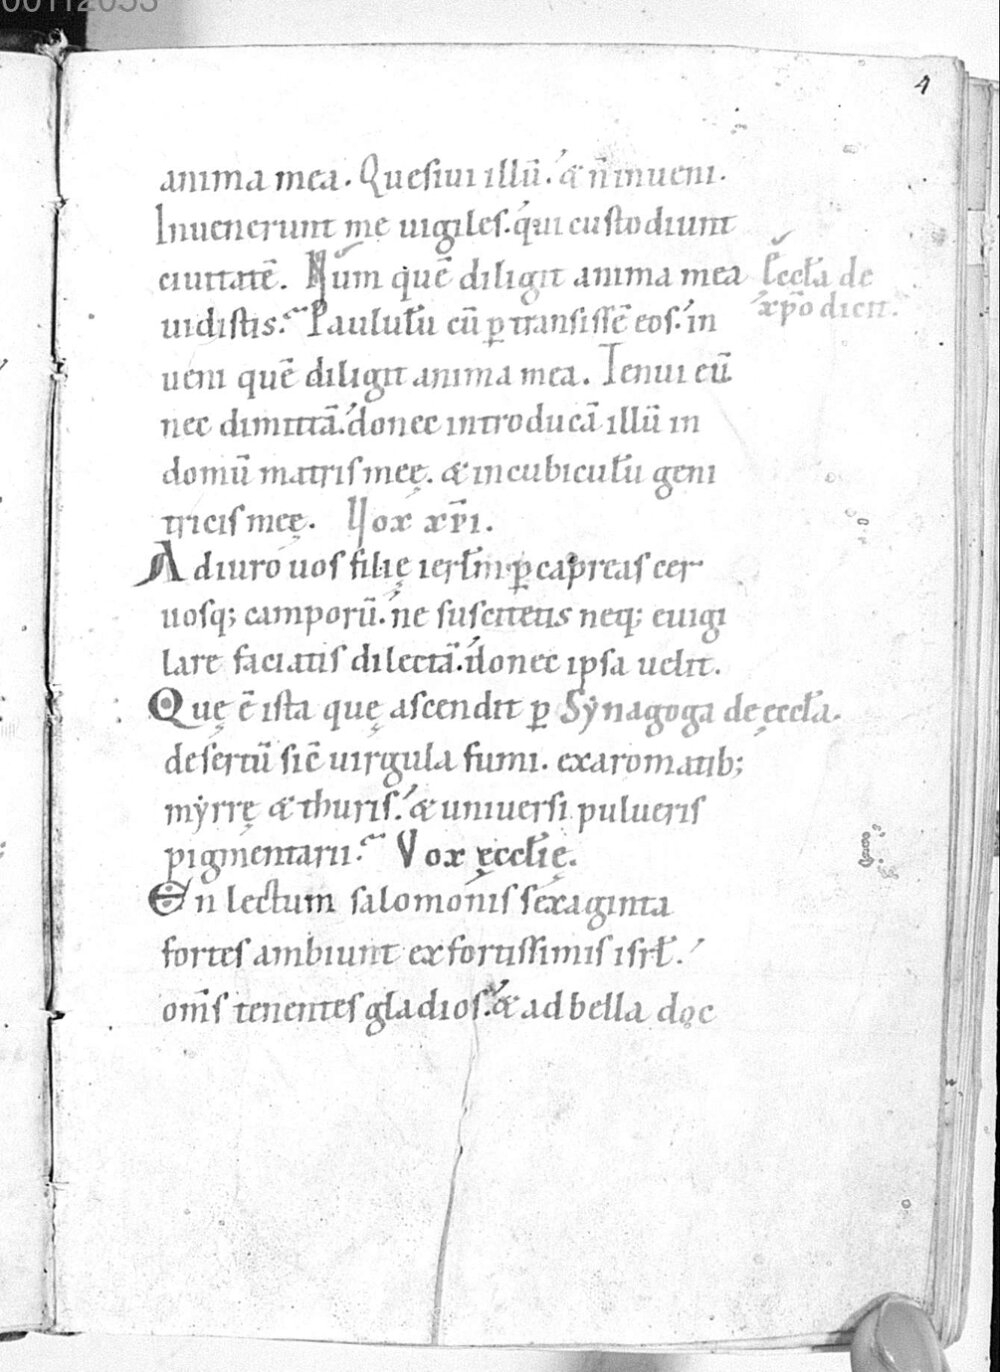 00112053
4
anima mea. Quesiui illū. & n̄ inueni.
Inuenerunt me uigiles. qui custodiunt
ciuitatē. Num quē diligit anima mea Eccła de
uidistis. Paululū cū ꝑtransissē eos. in xp̄o dicit.
ueni quē diligit anima mea. Tenui eū
nec dimittā. donec introducā illū in
domū matris meę. & in cubiculū geni
tricis meę. Uox xp̄i.
Adiuro uos filię ierłm ꝑ capreas cer
uosq; camporū. ne suscitetis neq; euigi
lare faciatis dilectā. donec ipsa uelit.
Quę ē ista quę ascendit ꝑ Synagoga de ęccła.
desertū sic̄ uirgula fumi. ex aromatib;
myrrę & thuris. & uniuersi pulueris
pigmentarii. Vox ęccłię.
En lectum salomonis sexaginta
fortes ambiunt ex fortissimis isrł.
om̄s tenentes gladios. & ad bella doc